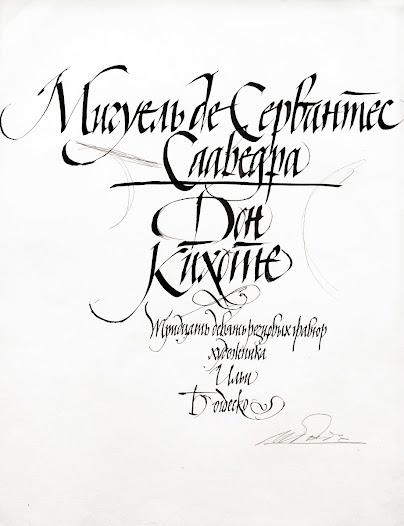 Мигуель де Сервантес
Сааведра
Дон
Кихоте
Тридцать девять резцовых гравюр
художника
Ильи
Богдеско